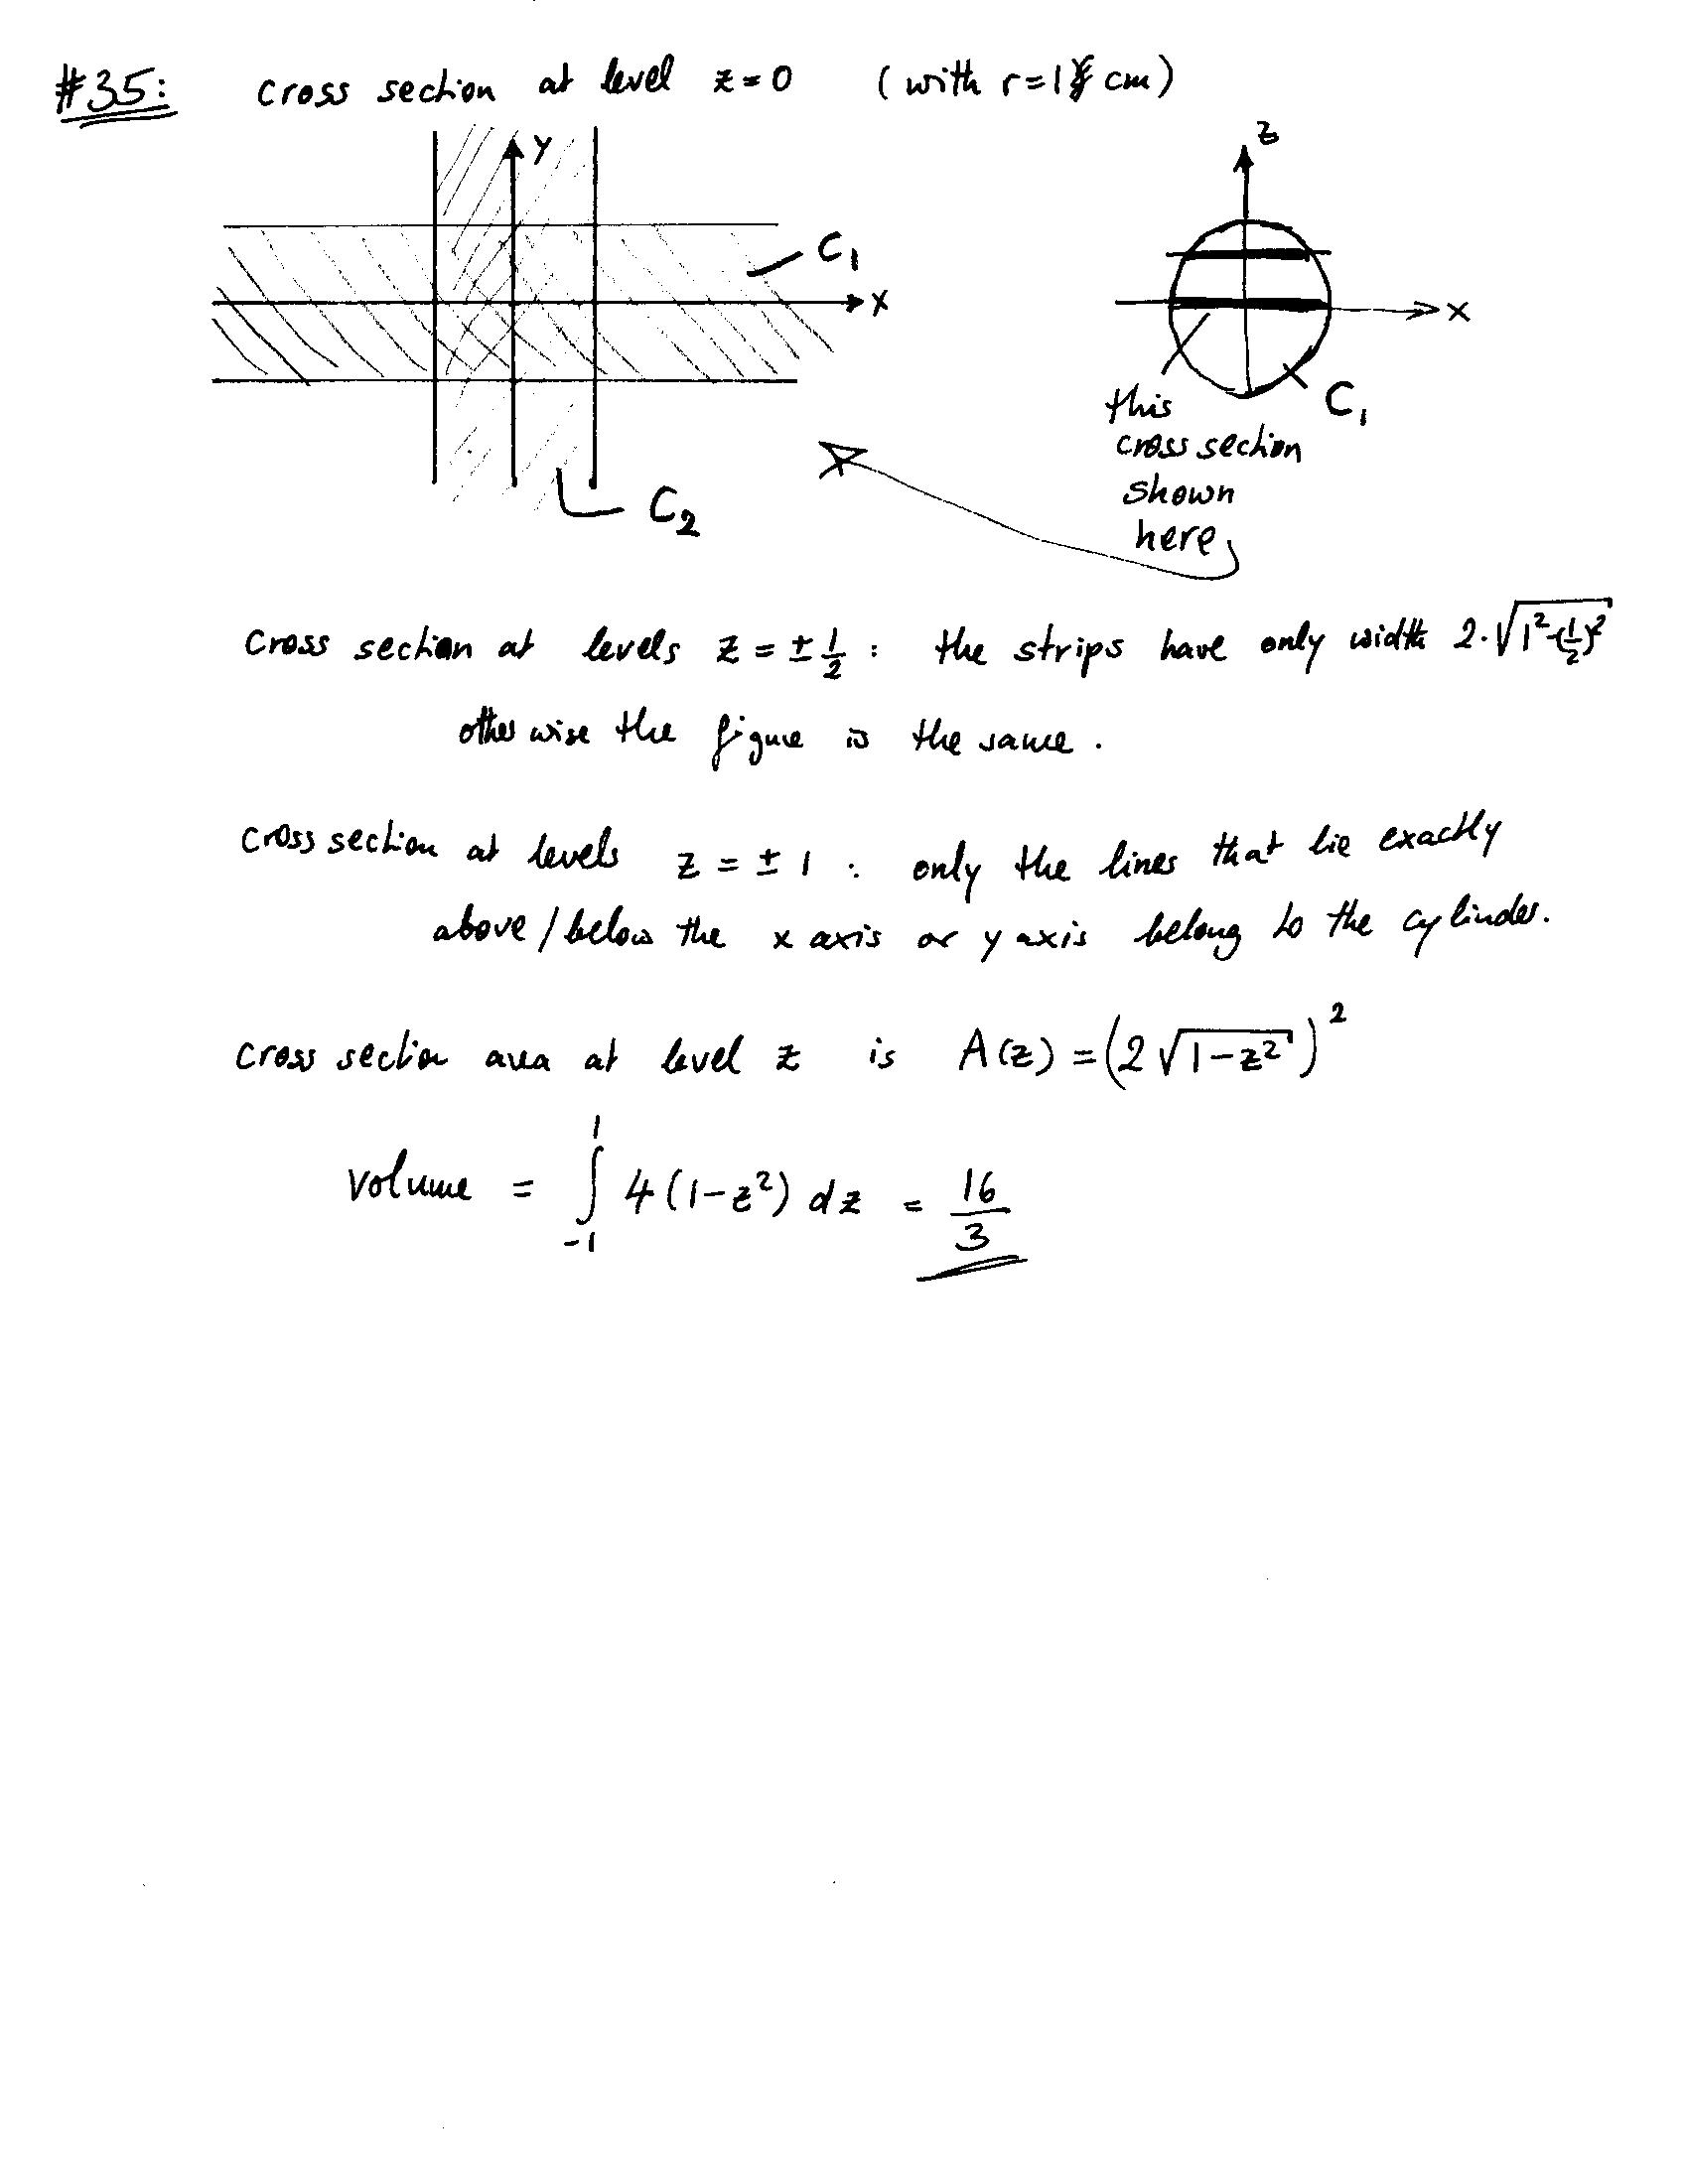 #35: cross section at level z=0 (with r=1 cm)
z
y
C₁
x
x
C₁
this
cross section
shown
here
C₂
cross section at levels z = ± 1/2 : the strips have only width 2·√(1²-(1/2)²)
otherwise the figure is the same.
cross section at levels z = ± 1 : only the lines that lie exactly
above/below the x axis or y axis belong to the cylinder.
cross section area at level z is A(z) = (2√(1-z²))²
volume = ∫₋₁¹ 4(1-z²) dz = 16/3